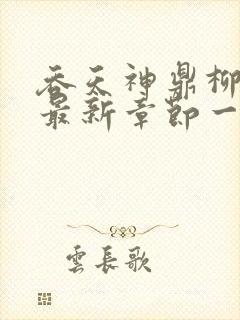 吞天神鼎柳
最新章節一
雲長歌